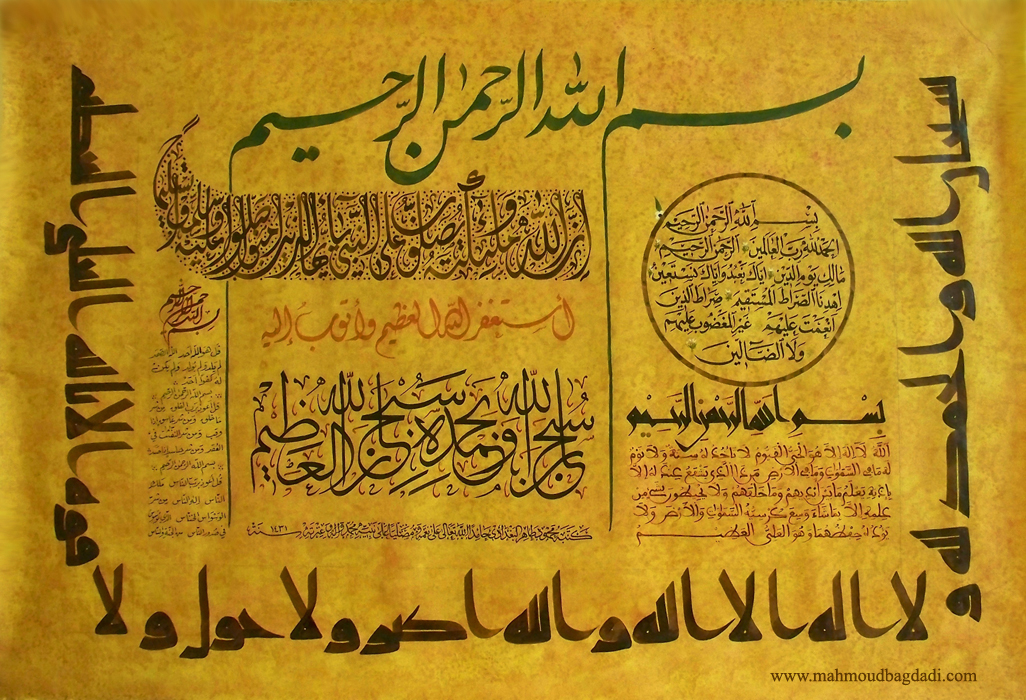 بسم الله الرحمن الرحيم
إن الله وملئكته يصلون على النبي يا أيها الذين آمنوا صلوا عليه وسلموا تسليما
أستغفر الله العظيم وأتوب إليه
سبحان الله وبحمده سبحان الله العظيم
بسم الله الرحمن الرحيم
الحمد لله رب العالمين الرحمن الرحيم
مالك يوم الدين إياك نعبد وإياك نستعين
اهدنا الصراط المستقيم صراط الذين
أنعمت عليهم غير المغضوب عليهم
ولا الضالين
بسم الله الرحمن الرحيم
الله لا إله إلا هو الحي القيوم لا تأخذه سنة ولا نوم
له ما في السموات وما في الأرض من ذا الذي يشفع عنده إلا
بإذنه يعلم ما بين أيديهم وما خلفهم ولا يحيطون بشيء من
علمه إلا بما شاء وسع كرسيه السموات والأرض ولا
يؤده حفظهما وهو العلي العظيم
بسم الله الرحمن الرحيم
قل هو الله أحد الله الصمد
لم يلد ولم يولد ولم يكن
له كفوا أحد
بسم الله الرحمن الرحيم
قل أعوذ برب الفلق من شر
ما خلق ومن شر غاسق إذا
وقب ومن شر النفثت في
العقد ومن شر حاسد إذا حسد
بسم الله الرحمن الرحيم
قل أعوذ برب الناس ملك
الناس إله الناس من شر
الوسواس الخناس الذي يوسوس
في صدور الناس من الجنة والناس
١٤٣١
سبحان الله والحمد لله و
لا إله إلا الله والله أكبر ولا حول ولا
قوة إلا بالله العلي العظيم
www.mahmoudbagdadi.com